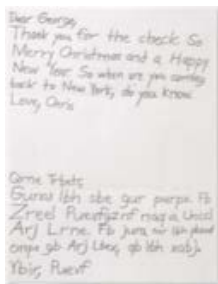 Dear George,
Thank you for the check. So
Merry Christmas and a Happy
New Year. So when are you coming
back to New York, do you know.
Love, Chris
Gunax lbh sbe gur purpx. Fb
Zreel Puevfgznf naq n Unccl
Arj Lrne. Fb jura ner lbh
onpx gb Arj Lbex, qb lbh xabj.
Ybir, Puevf